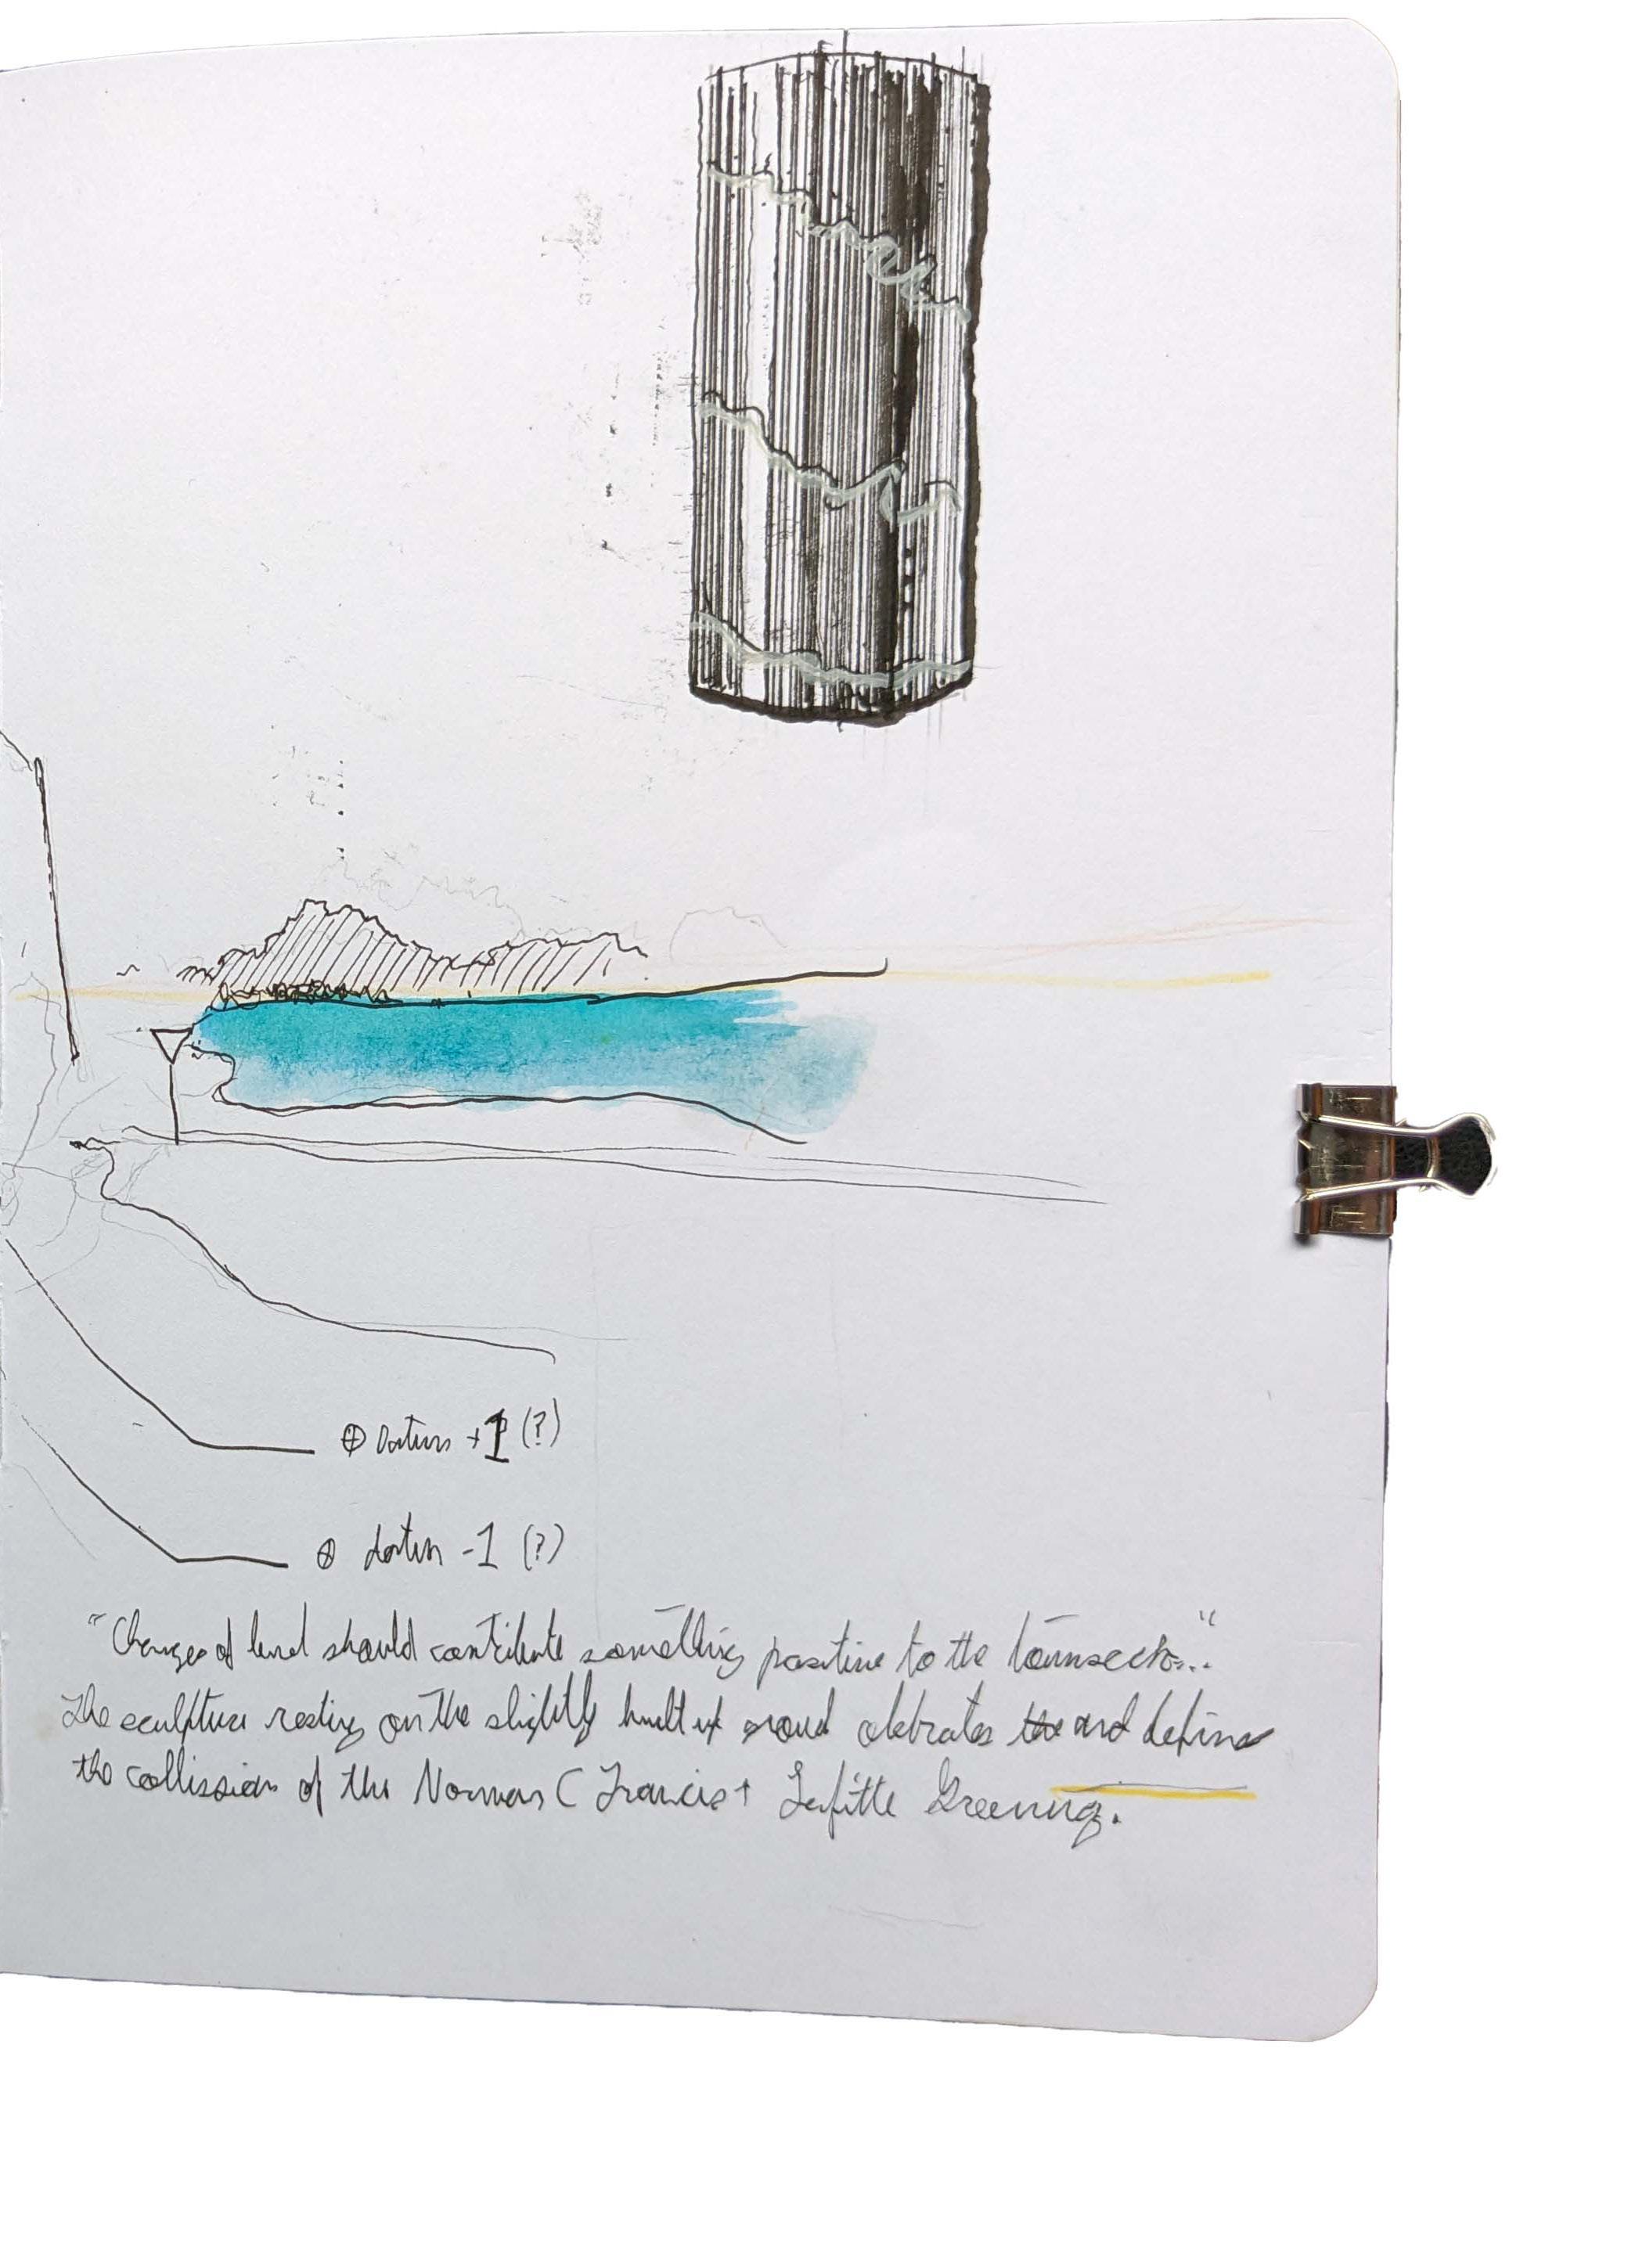 ⊕ Datum +1 (?)
⊗ datum -1 (?)
"Changes of level should contribute something positive to the townscape..."
The sculpture resting on the slightly built up mound celebrates the and defines
the collission of the Norman C Francis + Lafitte Greenway.